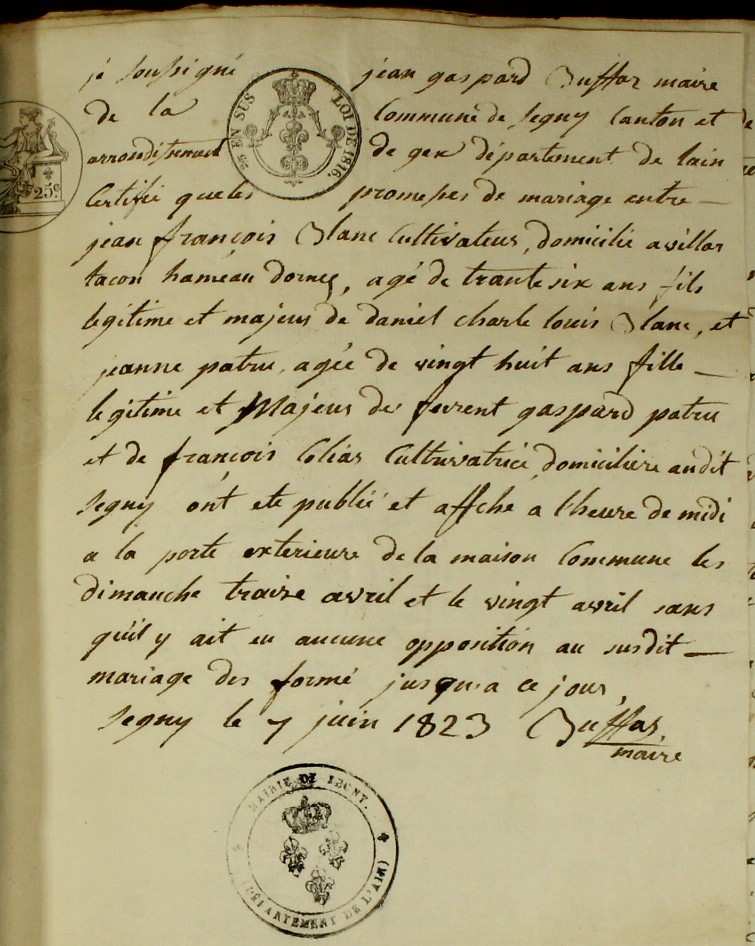 je soussigné jean gaspard Buffas maire
de la Commune de Segny Canton et
arrondissement de gex département de lain
Certifie que les promesses de mariage entre —
jean françois Blanc Cultivateur, domicilié a villar
tacon haméau dornex, agé de trante six ans, fils
legitime et majeur de daniel charle louis Blanc, et
jeanne patru, agée de vingt huit ans fille —
legitime et Majeur de gaspard patru
et de françois Cultivatrice domicilière audit
Segny ont ete publié et affché a l'heure de midi
a la porte exterieure de la maison Commune les
dimanche traize avril et le vingt avril sans
qu'il y ait eu aucune opposition au susdit —
mariage des formé jusqua ce jour,
Segny le 7 juin 1823 Buffas
maire
EN SUS LOI DE 1816.
25c
MAIRIE DE SEGNY.
(DÉPARTEMENT DE L'AIN)